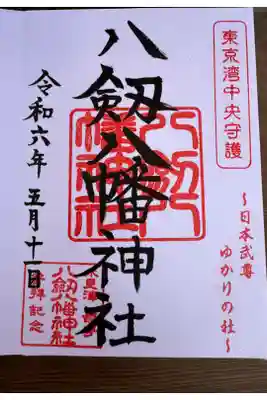 東京湾中央守護
〜日本武尊
ゆかりの社〜
八剱八幡神社
八剱八幡神社
令和六年 五月十一日
八剱八幡神社
参拝記念